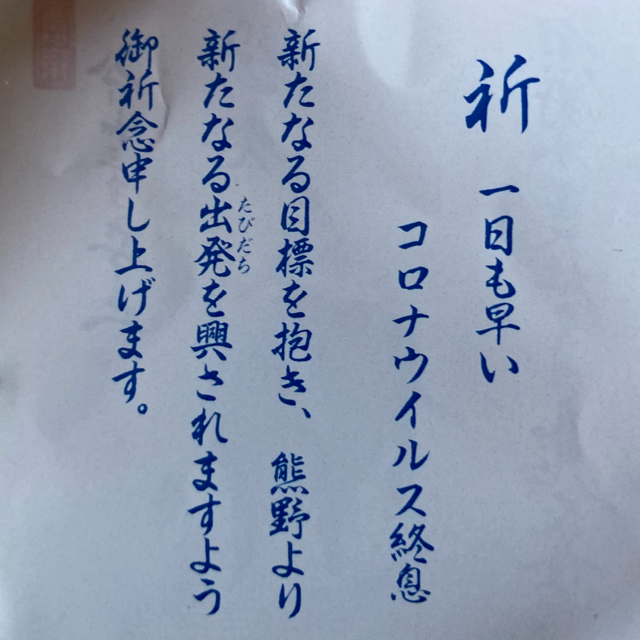 祈 一日も早い
コロナウイルス終息
新たなる目標を抱き、熊野より
新たなる出発を興されますよう
たびだち
御祈念申し上げます。